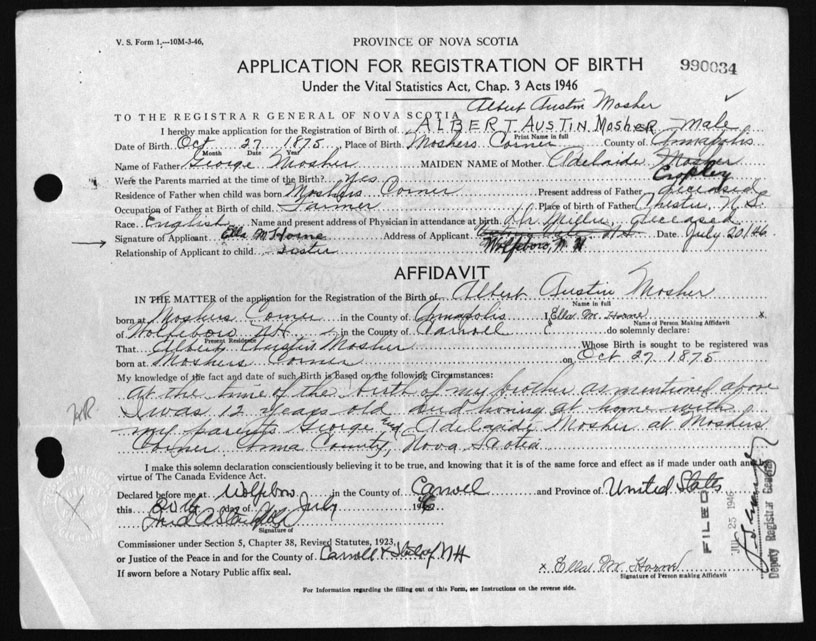 V. S. Form 1,—10M-3-46,
PROVINCE OF NOVA SCOTIA
APPLICATION FOR REGISTRATION OF BIRTH
990034
Under the Vital Statistics Act, Chap. 3 Acts 1946
Albert Austin Mosher
TO THE REGISTRAR GENERAL OF NOVA SCOTIA
I hereby make application for the Registration of Birth of ALBERT AUSTIN MOSHER Male
Print Name in full
Date of Birth. Oct 27 1875 Place of Birth Moshers Corner County of Annapolis
Month Date Year
Name of Father George Mosher MAIDEN NAME of Mother Adelaide Mosher
Cropley
Were the Parents married at the time of the Birth? yes
Residence of Father when child was born Moshers Corner Present address of Father deceased
Occupation of Father at Birth of child. Farmer Place of birth of Father Chester, N.S.
Race. English Name and present address of Physician in attendance at birth. Dr Miller, deceased
Signature of Applicant Ella M Horne Address of Applicant Wolfeboro, N H Date July 20/46
Relationship of Applicant to child sister
AFFIDAVIT
IN THE MATTER of the application for the Registration of Birth of Albert Austin Mosher
Name in full
born at Moshers Corner in the County of Annapolis I Ella M. Horne x
Name of Person Making Affidavit
of Wolfeboro, NH in the County of Carroll do solemnly declare:
Present Residence
That Albert Austin Mosher Whose Birth is sought to be registered was
born at Moshers Corner on Oct 27 1875
My knowledge of the fact and date of such Birth is Based on the following Circumstances:
At the time of the birth of my brother as mentioned above
I was 12 years old and living at home with
my parents George and Adelaide Mosher at Moshers
Corner Anna County, Nova Scotia
I make this solemn declaration conscientiously believing it to be true, and knowing that it is of the same force and effect as if made under oath and by
virtue of The Canada Evidence Act.
Declared before me at Wolfeboro in the County of Carroll and Province of United States
this 20th day of July 1946
Signature of
Commissioner under Section 5, Chapter 38, Revised Statutes, 1923,
or Justice of the Peace in and for the County of Carroll & State of NH
If sworn before a Notary Public affix seal.
x Ella M. Horne
Signature of Person making Affidavit
FILED
JUL 25 1946
Deputy Registrar General
For Information regarding the filling out of this Form, see Instructions on the reverse side.